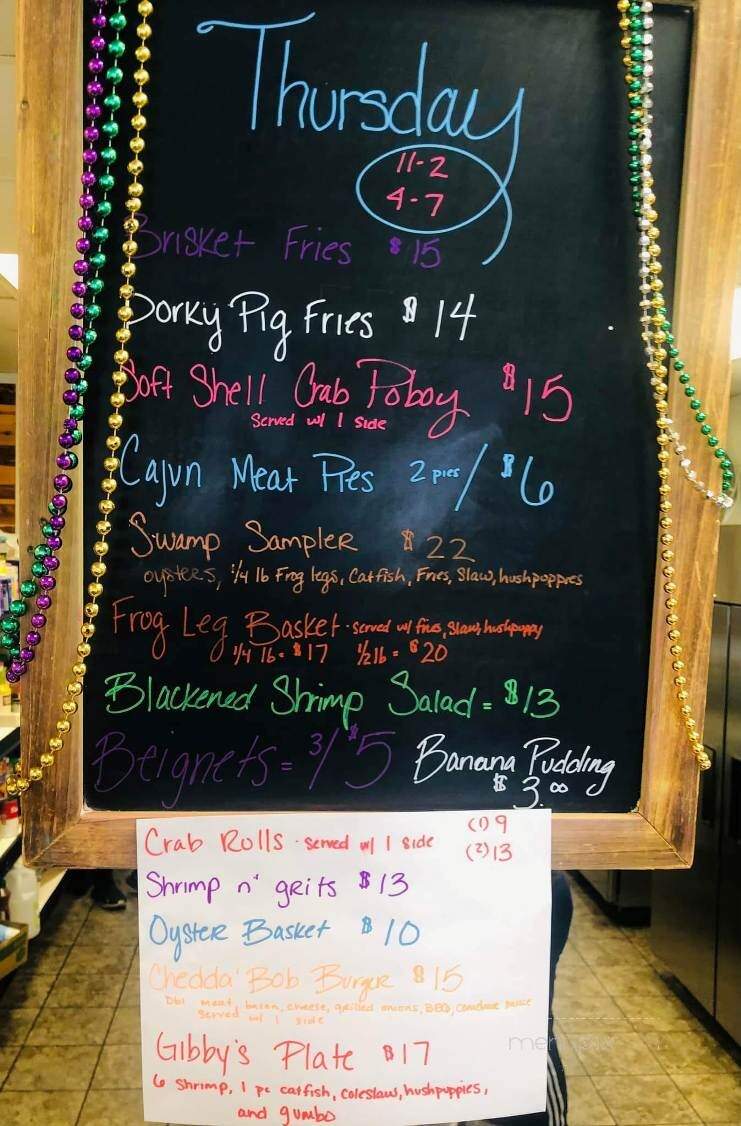 Thursday
11-2
4-7
Brisket Fries $15
Porky Pig Fries $14
Soft Shell Crab Poboy $15
Served w/ 1 Side
Cajun Meat Pies 2 pies / $6
Swamp Sampler $22
oysters, 1/4 lb Frog legs, Catfish, Fries, Slaw, hushpuppies
Frog Leg Basket - served w/ fries, Slaw, hushpuppy
1/4 lb = $17 1/2 lb = $20
Blackened Shrimp Salad = $13
Beignets = 3/$5 Banana Pudding
$3.00
Crab Rolls - Served w/ 1 side (1) 9
(2) 13
Shrimp n' grits $13
Oyster Basket $10
Chedda' Bob Burger $15
Dbl meat, bacon, cheese, grilled onions, BBQ,
Served w/ 1 side
Gibby's Plate $17
6 Shrimp, 1 pc catfish, coleslaw, hushpuppies,
and gumbo